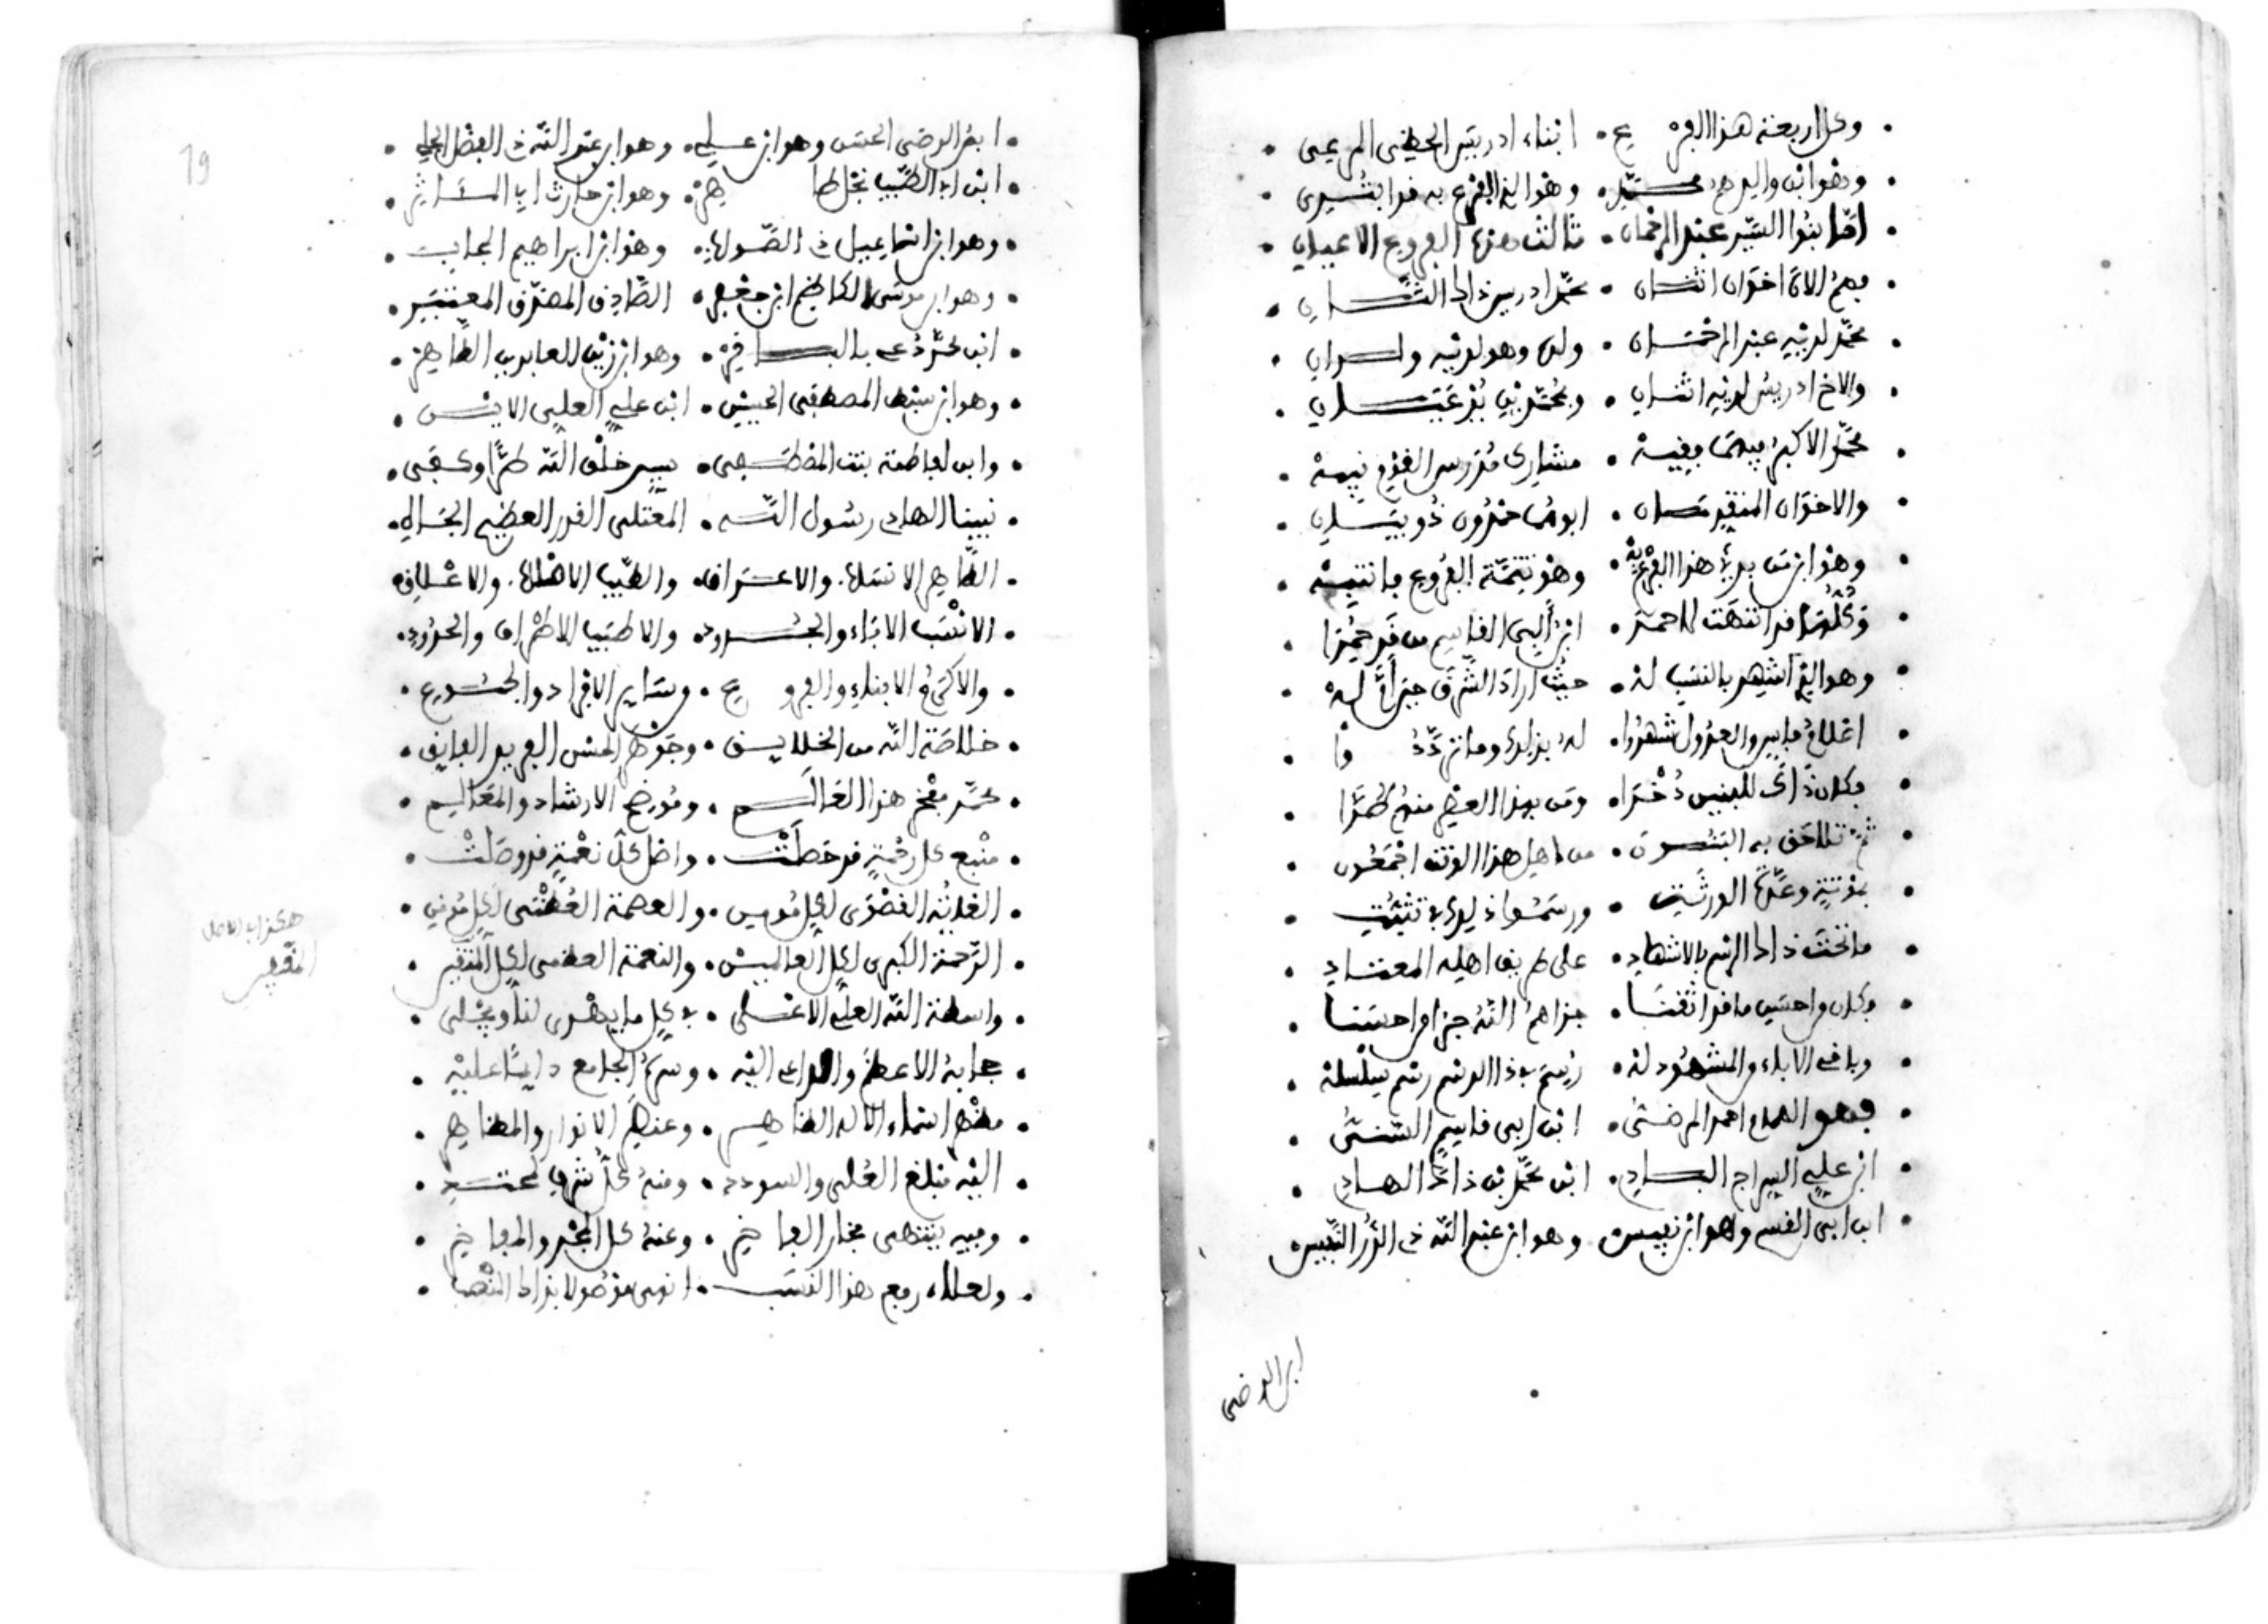 وكل اربعة هذا الفرع • ابناء ادريس
وهو ابن والدهم محمد • وهو الذي الفرع به قد ابتدي
اما بنوا السيد عبد الرحمان • ثالث هذه الفروع الاعيان
فهم الان اخوان اثنان • محمد ادريس ذاك الثان
محمد لديه عبد الرحمان • ولد وهو لديه ولدان
والاخ ادريس لديه اثنان • ومحمد بن
محمد الاكبر فيهما وفيه •
والاخوان المتقدمان • ابوهما حمدون ذو بيان
وهو ابن من بدئ هذا الفرع به • وهو تتمة الفروع فانتبه
وكلها قد انتهت لاحمد • ابن ابي القاسم من قد حمدا
وهو الذي اشتهر بالنسب له • حيث اراد الشرف
اعلام فاس والعدول شهدوا • له بذاك وما ترددوا
فكان ذاك للبنين ذخرا • ومن بهذا العظم منهم طرا
ثم تلاحق به البنون • من اهل هذا الوقت اجمعون
بموتته وعدة الورثة • ورسموا
ما تحت ذاك الرسم بالاشهاد • على طريق اهله المعتاد
وكان واحسن ما قد اتقنا • جزاهم الله جزاء حسنا
وباقي الاباء والمشهود له • رسم بذا الرسم رسم سلسله
فهو الهمام احمد المرضي • ابن ابي قاسم السني
ابن علي السراج الباد • ابن محمد بن ذاك الهاد
ابن ابي القسم وهو ابن نفيس • وهو ابن عبد الله ذي الدر النفيس
ابن الرضى
19
ابن الرضى الحسن وهو ابن علي • وهو ابن عبد الله ذي الفضل الجلي
ابن ابي الطيب نجل طاهر • وهو ابن حارث ابي المئاثر
وهو ابن اسماعيل ذي الصولات • وهو ابن ابراهيم المجاب
وهو ابن موسى الكاظم ابن جعفر • الصادق المصدق المعتبر
ابن محمد دعي بالباقر • وهو ابن زين العابدين الطاهر
وهو ابن سبط المصطفى الحسين • ابن علي العلي
وابن لفاطمة بنت المصطفى • سيد خلق الله طرا وكفى
نبينا الهادي رسول الله • المعتلي القدر العظيم الجاه
الطاهر الانساب والاعراف • والطيب الاصلاب والاعطاف
الانسب الاباء والجدود • والاطيب الاطراف والحدود
والاكرم الابناء والفروع • وسائر الافراد والجموع
خلاصة الله من الخلايق • وجوهر الحسن الفريد الفايق
محمد مفخر هذا العالم • وموضح الارشاد والمعالم
منبع كل رحمة قد حصلت • واصل كل نعمة قد وصلت
الغاية القصوى لكل مومن • والعصمة العظمى لكل موقن
الرحمة الكبرى لكل العالمين • والنعمة العظمى لكل المتقين
واسطة الله العلي الاعلى • في كل ما يهدى لنا ويجلى
حجابه الاعظم والداعي اليه • وسره الجامع دايما عليه
مظهر اسماء الاله الظاهر • وعنصر الانوار والمظاهر
اليه مبلغ العلى والسودد • ومنه كل شرف
وفيه ينتهى فخار الفاخر • وعنه كل المجد والمفاخر
ولعلاه رفع هذا النسب • انهى موصولا بذاك المنصب
هكذا بالاصل
المتقين